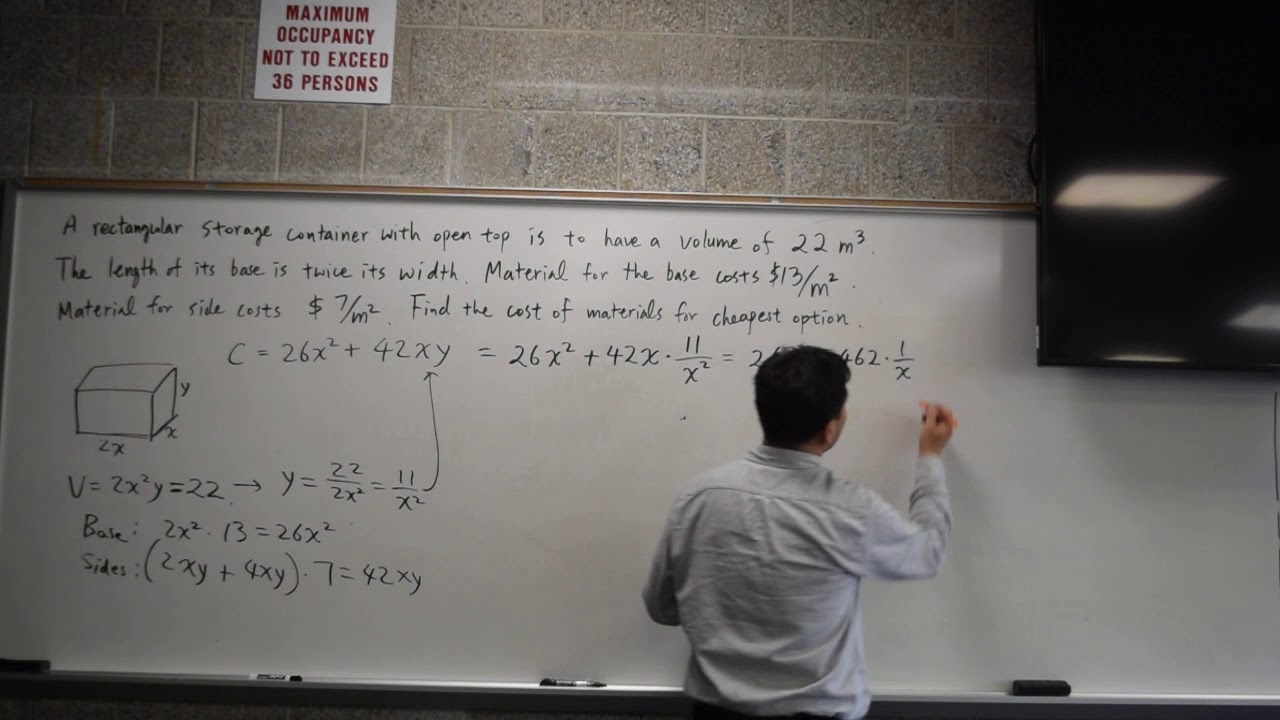 MAXIMUM
OCCUPANCY
NOT TO EXCEED
36 PERSONS
A rectangular storage container with open top is to have a volume of 22 m³.
The length of its base is twice its width. Material for the base costs $13/m².
Material for side costs $7/m². Find the cost of materials for cheapest option.
C = 26x² + 42xy = 26x² + 42x · 11/x² = 2 462 · 1/x
y
x
2x
V = 2x²y = 22 → y = 22/2x² = 11/x²
Base: 2x² · 13 = 26x²
Sides: (2xy + 4xy) · 7 = 42xy